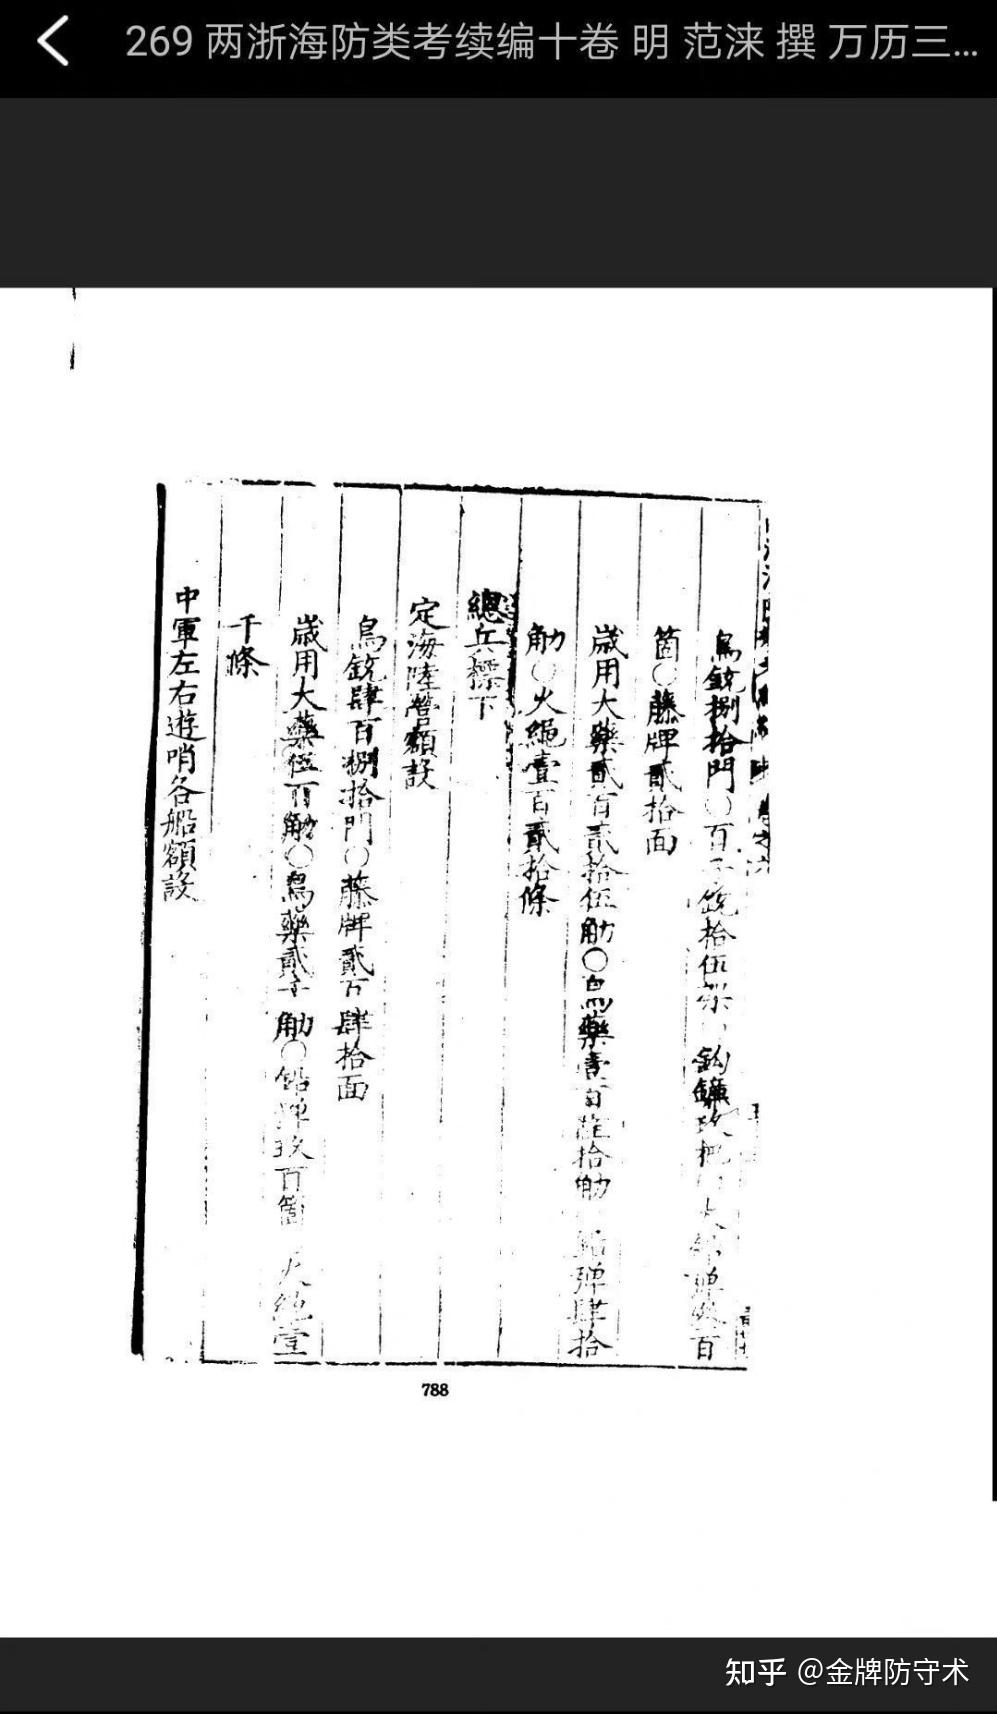 269 两浙海防类考续编十卷 明 范涞 撰 万历三...
鳥銃捌拾門○百子銃拾伍架 鈎鐮玖 大鉛彈 百
箇○藤牌貳拾面
歲用大藥貳百貳拾伍觔○鳥藥壹百 拾觔 鉛彈肆拾
觔○火繩壹百貳拾條
總兵標下
定海陸營額設
鳥銃肆百捌拾門○藤牌貳百肆拾面
歲用大藥伍百觔○鳥藥貳千觔○鉛彈玖百箇 火繩壹
千條
中軍左右遊哨各船額設
788
知乎 @金牌防守术